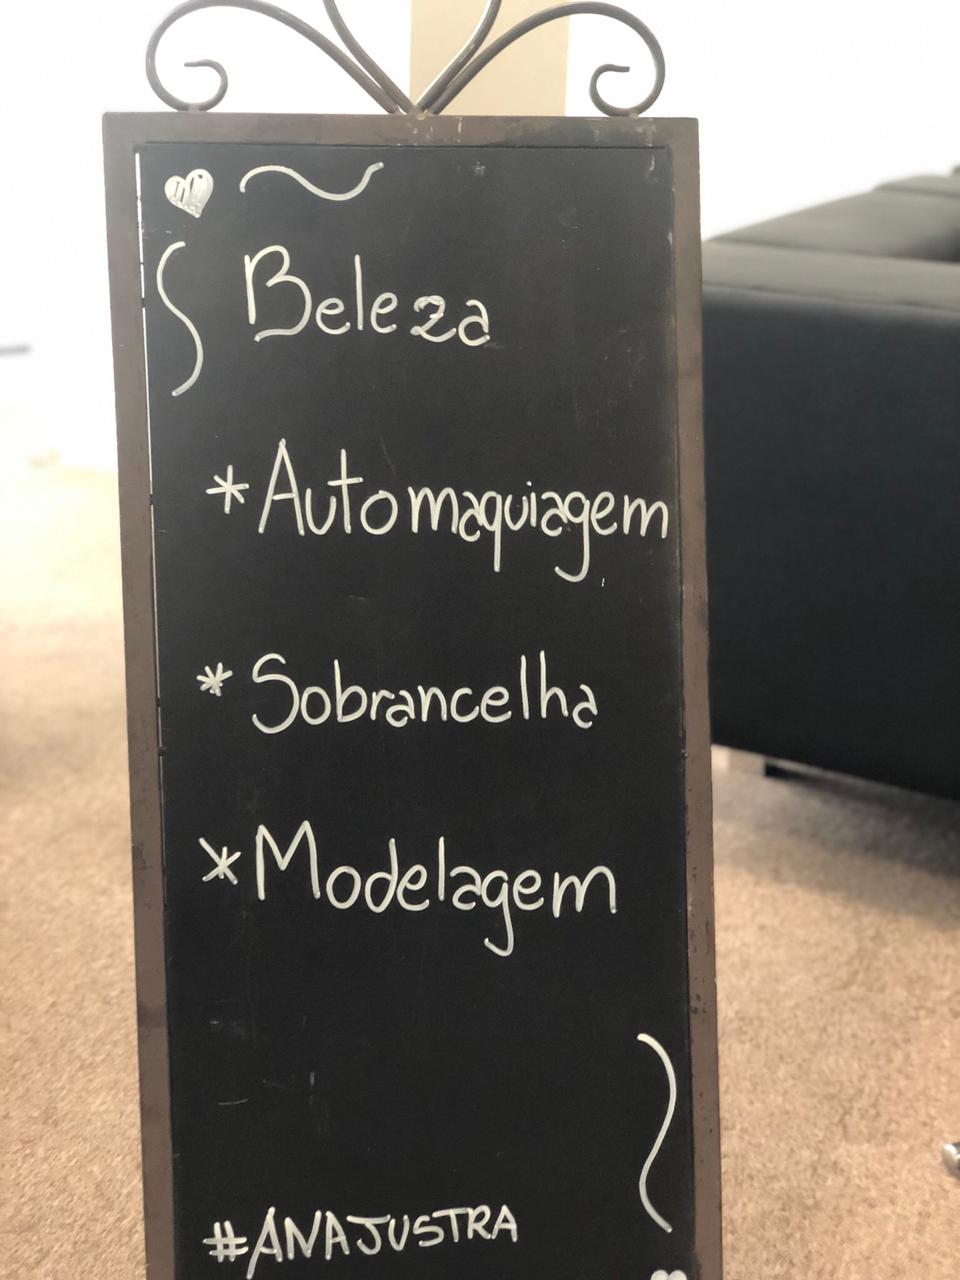 Beleza
* Automaquiagem
* Sobrancelha
* Modelagem
#ANAJUSTRA